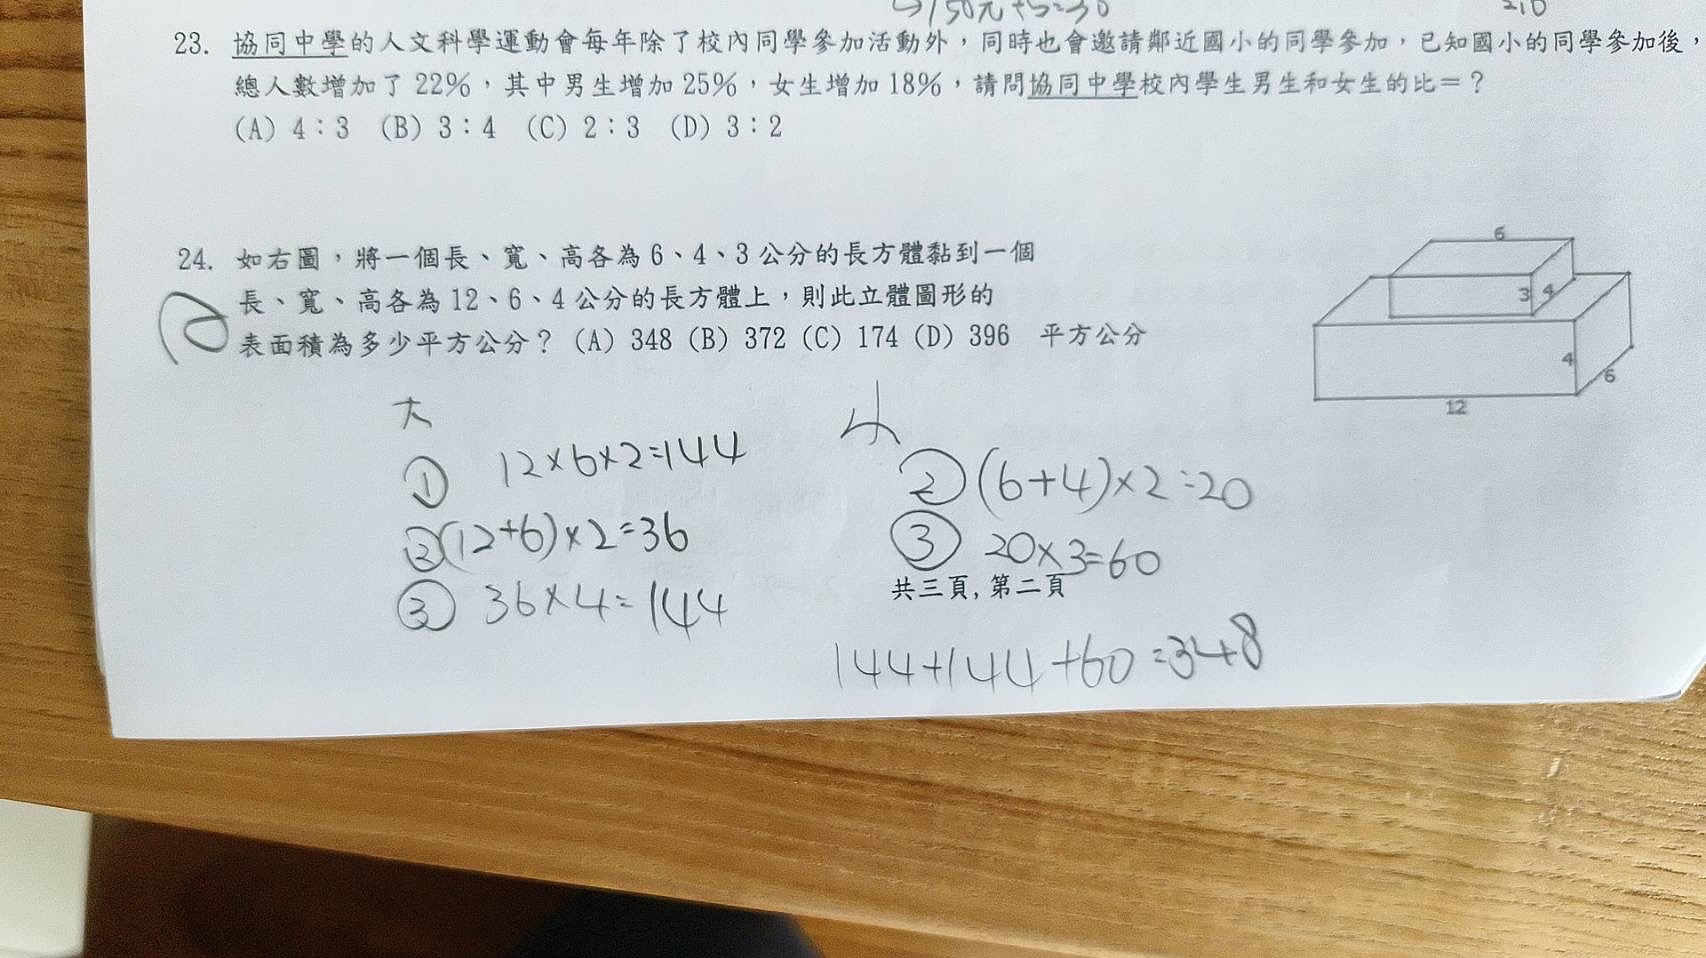 →150元÷5=30
210
23. 協同中學的人文科學運動會每年除了校內同學參加活動外，同時也會邀請鄰近國小的同學參加，已知國小的同學參加後，
總人數增加了 22%，其中男生增加 25%，女生增加 18%，請問協同中學校內學生男生和女生的比＝？
(A) 4：3 (B) 3：4 (C) 2：3 (D) 3：2
24. 如右圖，將一個長、寬、高各為 6、4、3 公分的長方體黏到一個
長、寬、高各為 12、6、4 公分的長方體上，則此立體圖形的
表面積為多少平方公分？ (A) 348 (B) 372 (C) 174 (D) 396 平方公分
6
3 4
4
6
12
大
① 12×6×2=144
②(12+6)×2=36
③ 36×4=144
小
②(6+4)×2=20
③ 20×3=60
共三頁, 第二頁
144+144+60=348